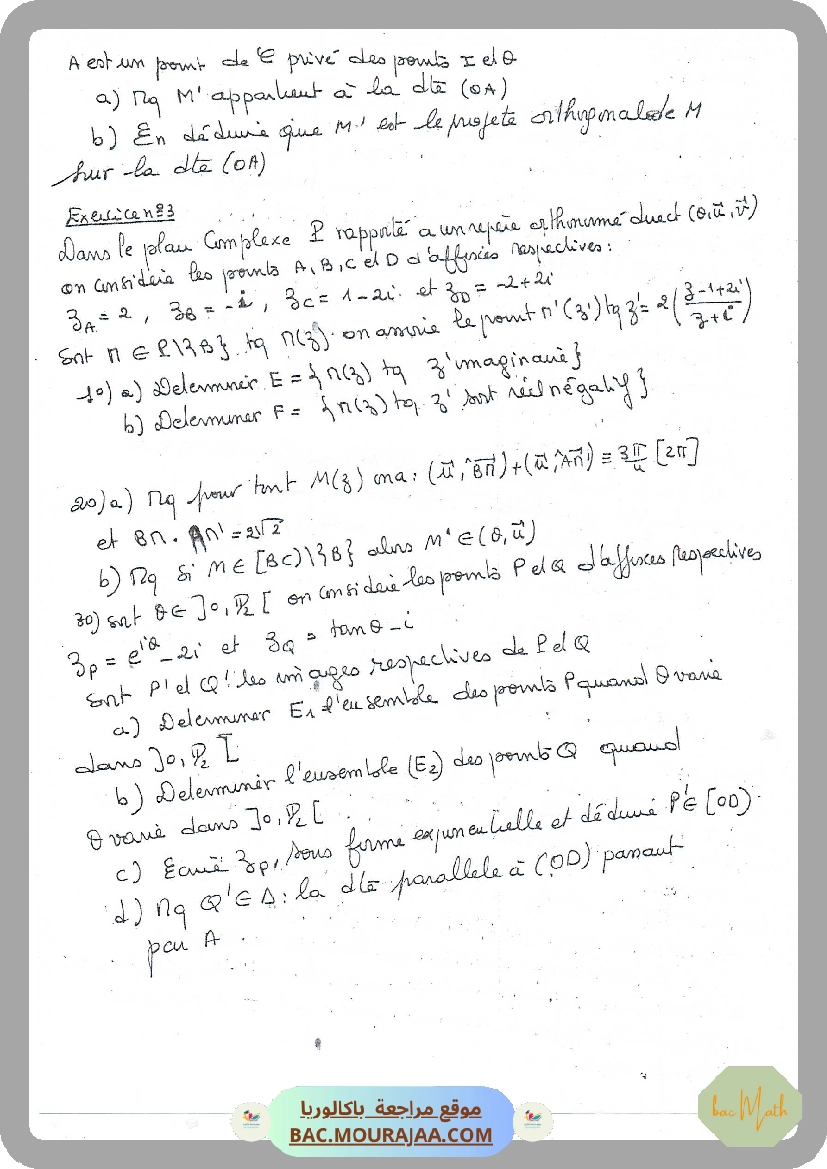 A est un point de C privé des points I et O
a) Mq M' appartient à la dte (OA)
b) En déduire que M' est le projeté orthogonale de M
sur la dte (OA)
Exercice n°3
Dans le plan Complexe P rapporté a un repère orthonormé direct (O,u⃗,v⃗)
on considère les points A, B, C et D d'affixes respectives :
zA = 2 , zB = -i , zC = 1-2i et zD = -2+2i
Soit M ∈ P\{B} tq M(z) on associe le point M'(z') tq z' = 2((z-1+2i)/(z+i))
1°) a) Determiner E = {M(z) tq z' imaginaire}
b) Determiner F = {M(z) tq z' soit réel négatif}
2°) a) Mq pour tout M(z) on a : (u⃗, BM⃗) + (u⃗, AM'⃗) ≡ 3π/4 [2π]
et BM . AM' = 2√2
b) Mq si M ∈ [BC) \ {B} alors M' ∈ (O,u⃗)
3°) soit θ ∈ ]0, π/2[ on considère les points P et Q d'affixes respectives
zP = e^iθ - 2i et zQ = tanθ - i
Soit P' et Q' les images respectives de P et Q
a) Determiner E1 l'ensemble des points P quand θ varie
dans ]0, π/2[
b) Determinér l'ensemble (E2) des points Q quand
θ varie dans ]0, π/2[
c) Ecrire zP' sous forme exponentielle et déduire P' ∈ [OD)
d) Mq Q' ∈ Δ : la dte parallele à (OD) passant
par A
موقع مراجعة باكالوريا
BAC.MOURAJAA.COM
bac Math